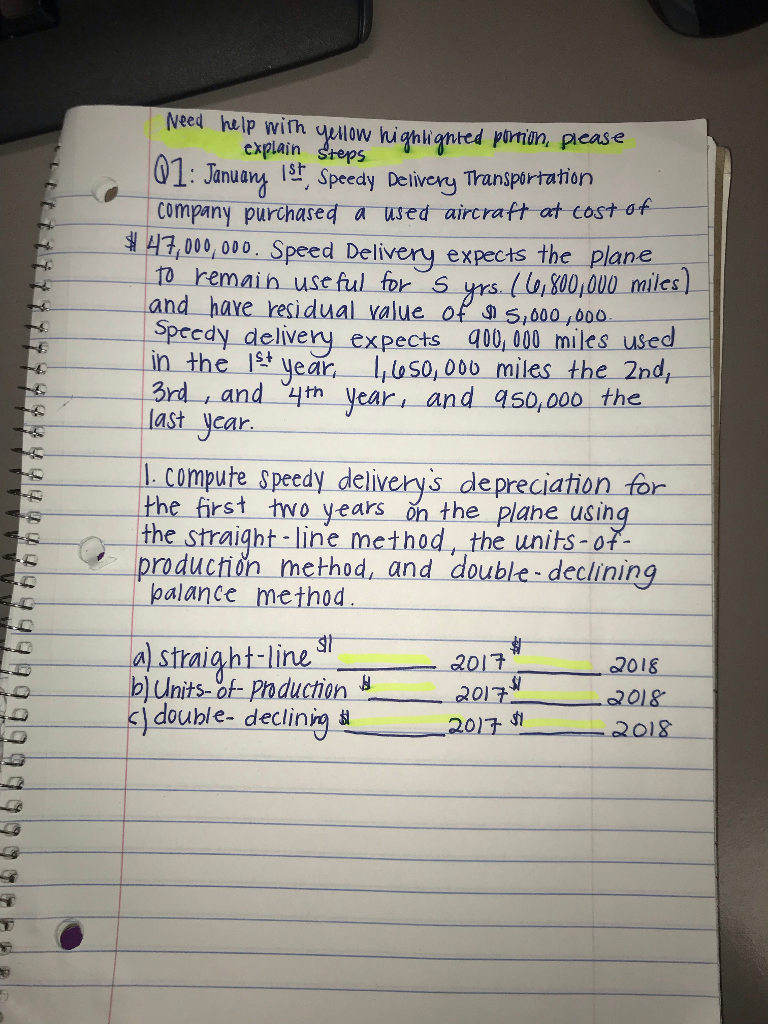 Need help with yellow highlighted portion, please
explain steps
Q1: January 1st, Speedy Delivery Transportation
company purchased a used aircraft at cost of
$47,000,000. Speed Delivery expects the plane
to remain useful for 5 yrs. (6,800,000 miles)
and have residual value of $5,000,000.
Speedy delivery expects 900,000 miles used
in the 1st year, 1,650,000 miles the 2nd,
3rd, and 4th year, and 950,000 the
last year.
1. compute speedy delivery's depreciation for
the first two years on the plane using
the straight-line method, the units-of-
production method, and double-declining
balance method.
a) straight-line $ ______ 2017 $ ______ 2018
b) Units-of-Production $ ______ 2017 $ ______ 2018
c) double-declining $ ______ 2017 $ ______ 2018